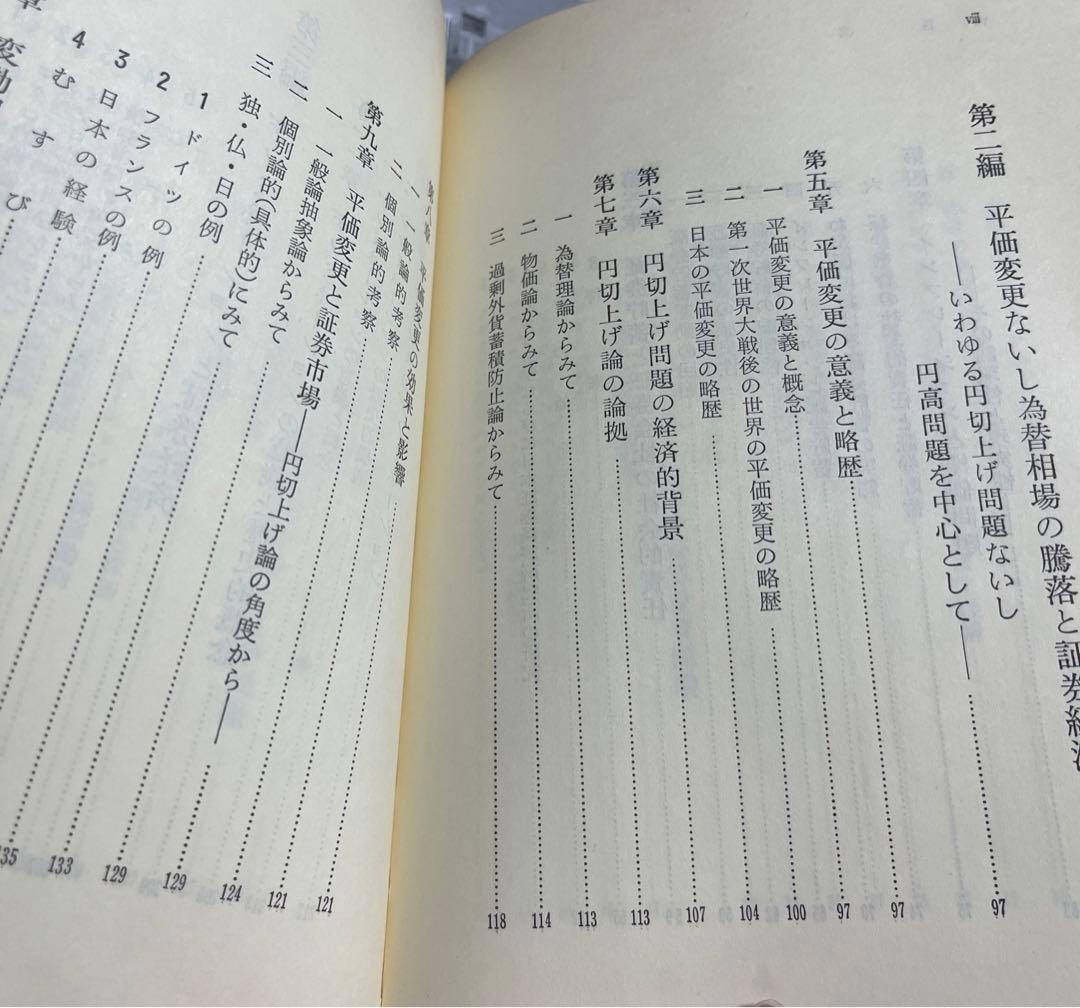 viii
第二編 平価変更ないし為替相場の騰落と証券経
——いわゆる円切上げ問題ないし
円高問題を中心として——……97
第五章 平価変更の意義と略歴……97
一 平価変更の意義と概念……97
二 第一次世界大戦後の世界の平価変更の略歴……100
三 日本の平価変更の略歴……104
第六章 円切上げ問題の経済的背景……107
第七章 円切上げ論の論拠……113
一 為替理論からみて……113
二 物価論からみて……114
三 過剰外貨蓄積防止論からみて……118
第八章 平価変更の効果と影響……121
一 一般論的考察……121
二 個別論的考察……124
第九章 平価変更と証券市場——円切上げ論の角度から——……129
一 一般論抽象論からみて……129
二 個別論的(具体的)にみて……133
三 独・仏・日の例……135
1 ドイツの例
2 フランスの例
3 日本の経験
4 むすび
章 変動